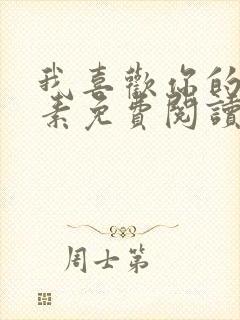 我喜歡你的
素免費閱讀
周士第